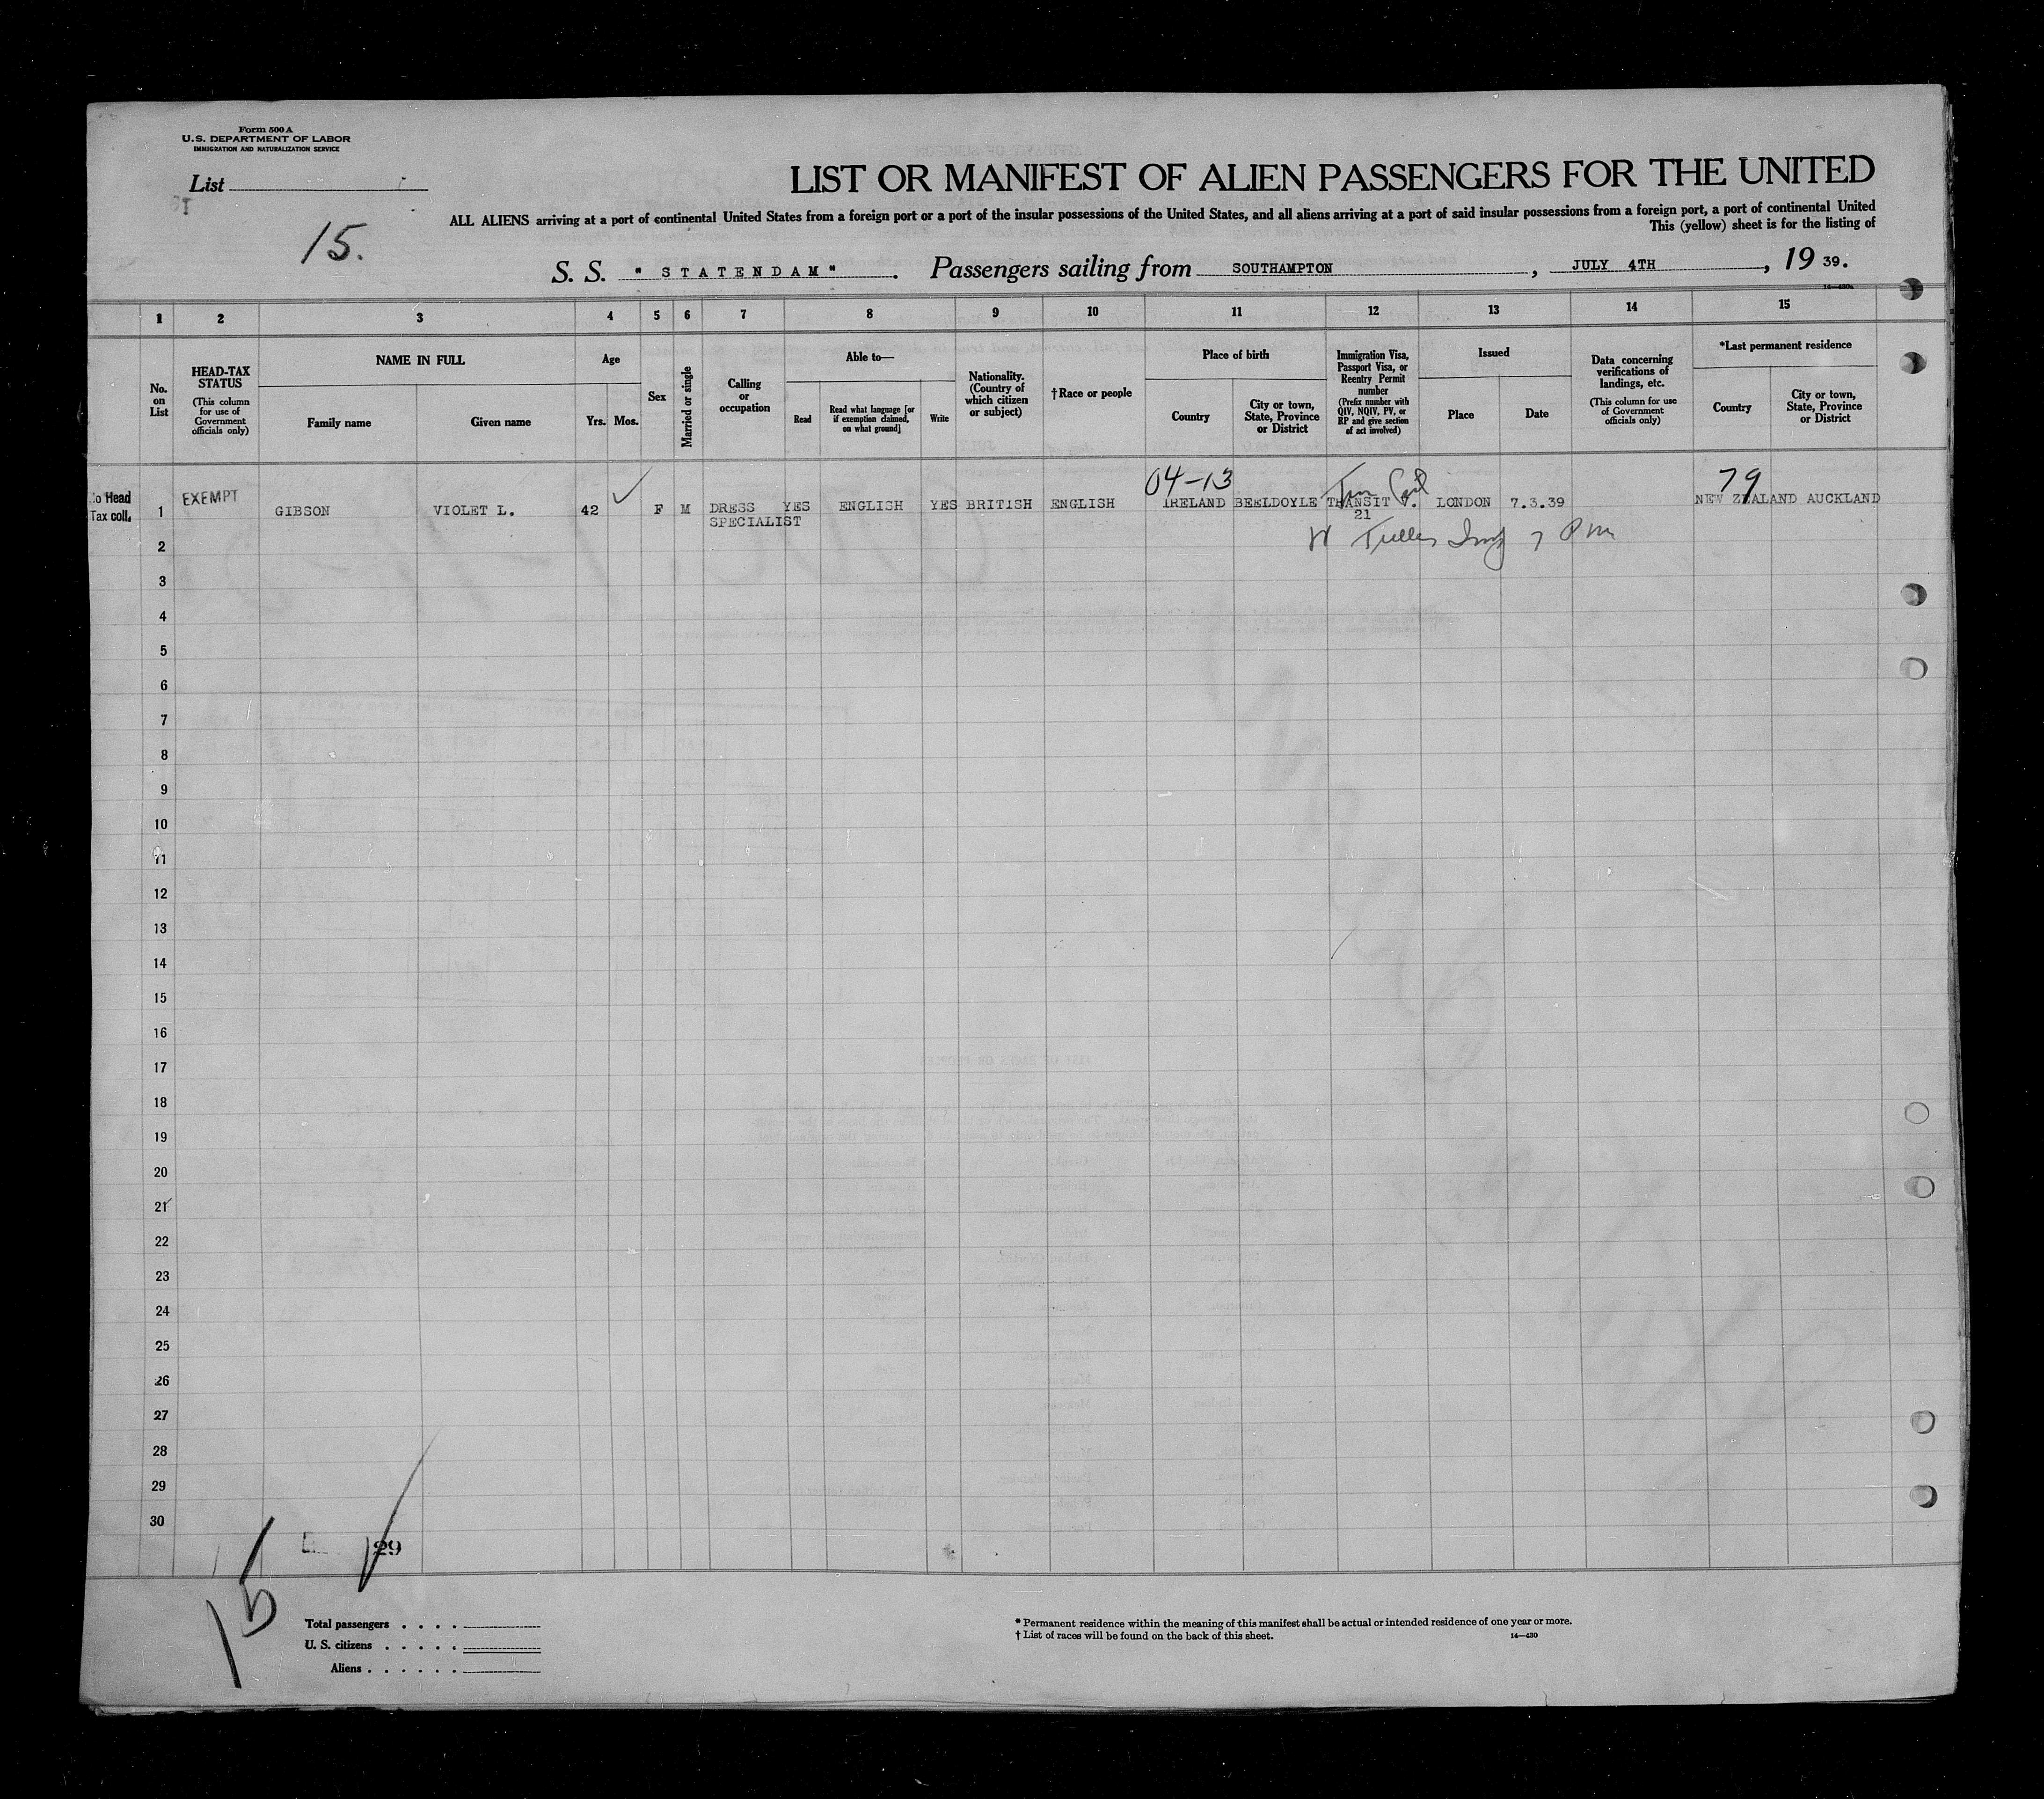 Form 500 A
U.S. DEPARTMENT OF LABOR
IMMIGRATION AND NATURALIZATION SERVICE
List
15.
LIST OR MANIFEST OF ALIEN PASSENGERS FOR THE UNITED
ALL ALIENS arriving at a port of continental United States from a foreign port or a port of the insular possessions of the United States, and all aliens arriving at a port of said insular possessions from a foreign port, a port of continental United
This (yellow) sheet is for the listing of
S. S. "STATENDAM". Passengers sailing from SOUTHAMPTON, JULY 4TH, 19 39.
1 2 3 4 5 6 7 8 9 10 11 12 13 14 15
No. on List
HEAD-TAX STATUS (This column for use of Government officials only)
NAME IN FULL
Family name
Given name
Age
Yrs. Mos.
Sex
Married or single
Calling or occupation
Able to—
Read
Read what language [or if exemption claimed, on what ground]
Write
Nationality. (Country of which citizen or subject)
†Race or people
Place of birth
Country
City or town, State, Province or District
Immigration Visa, Passport Visa, or Reentry Permit number (Prefix number with QIV, NQIV, PV, or RP and give section of act involved)
Issued
Place
Date
Data concerning verifications of landings, etc. (This column for use of Government officials only)
*Last permanent residence
Country
City or town, State, Province or District
04-13
79
o Head
Tax coll.
1 EXEMPT GIBSON VIOLET L. 42 F M DRESS SPECIALIST YES ENGLISH YES BRITISH ENGLISH IRELAND BEELDOYLE TRANSIT V. 21 LONDON 7.3.39 NEW ZEALAND AUCKLAND
2
3
4
5
6
7
8
9
10
11
12
13
14
15
16
17
18
19
20
21
22
23
24
25
26
27
28
29
30
29
15
Total passengers
U. S. citizens
Aliens
* Permanent residence within the meaning of this manifest shall be actual or intended residence of one year or more.
† List of races will be found on the back of this sheet.
14—430